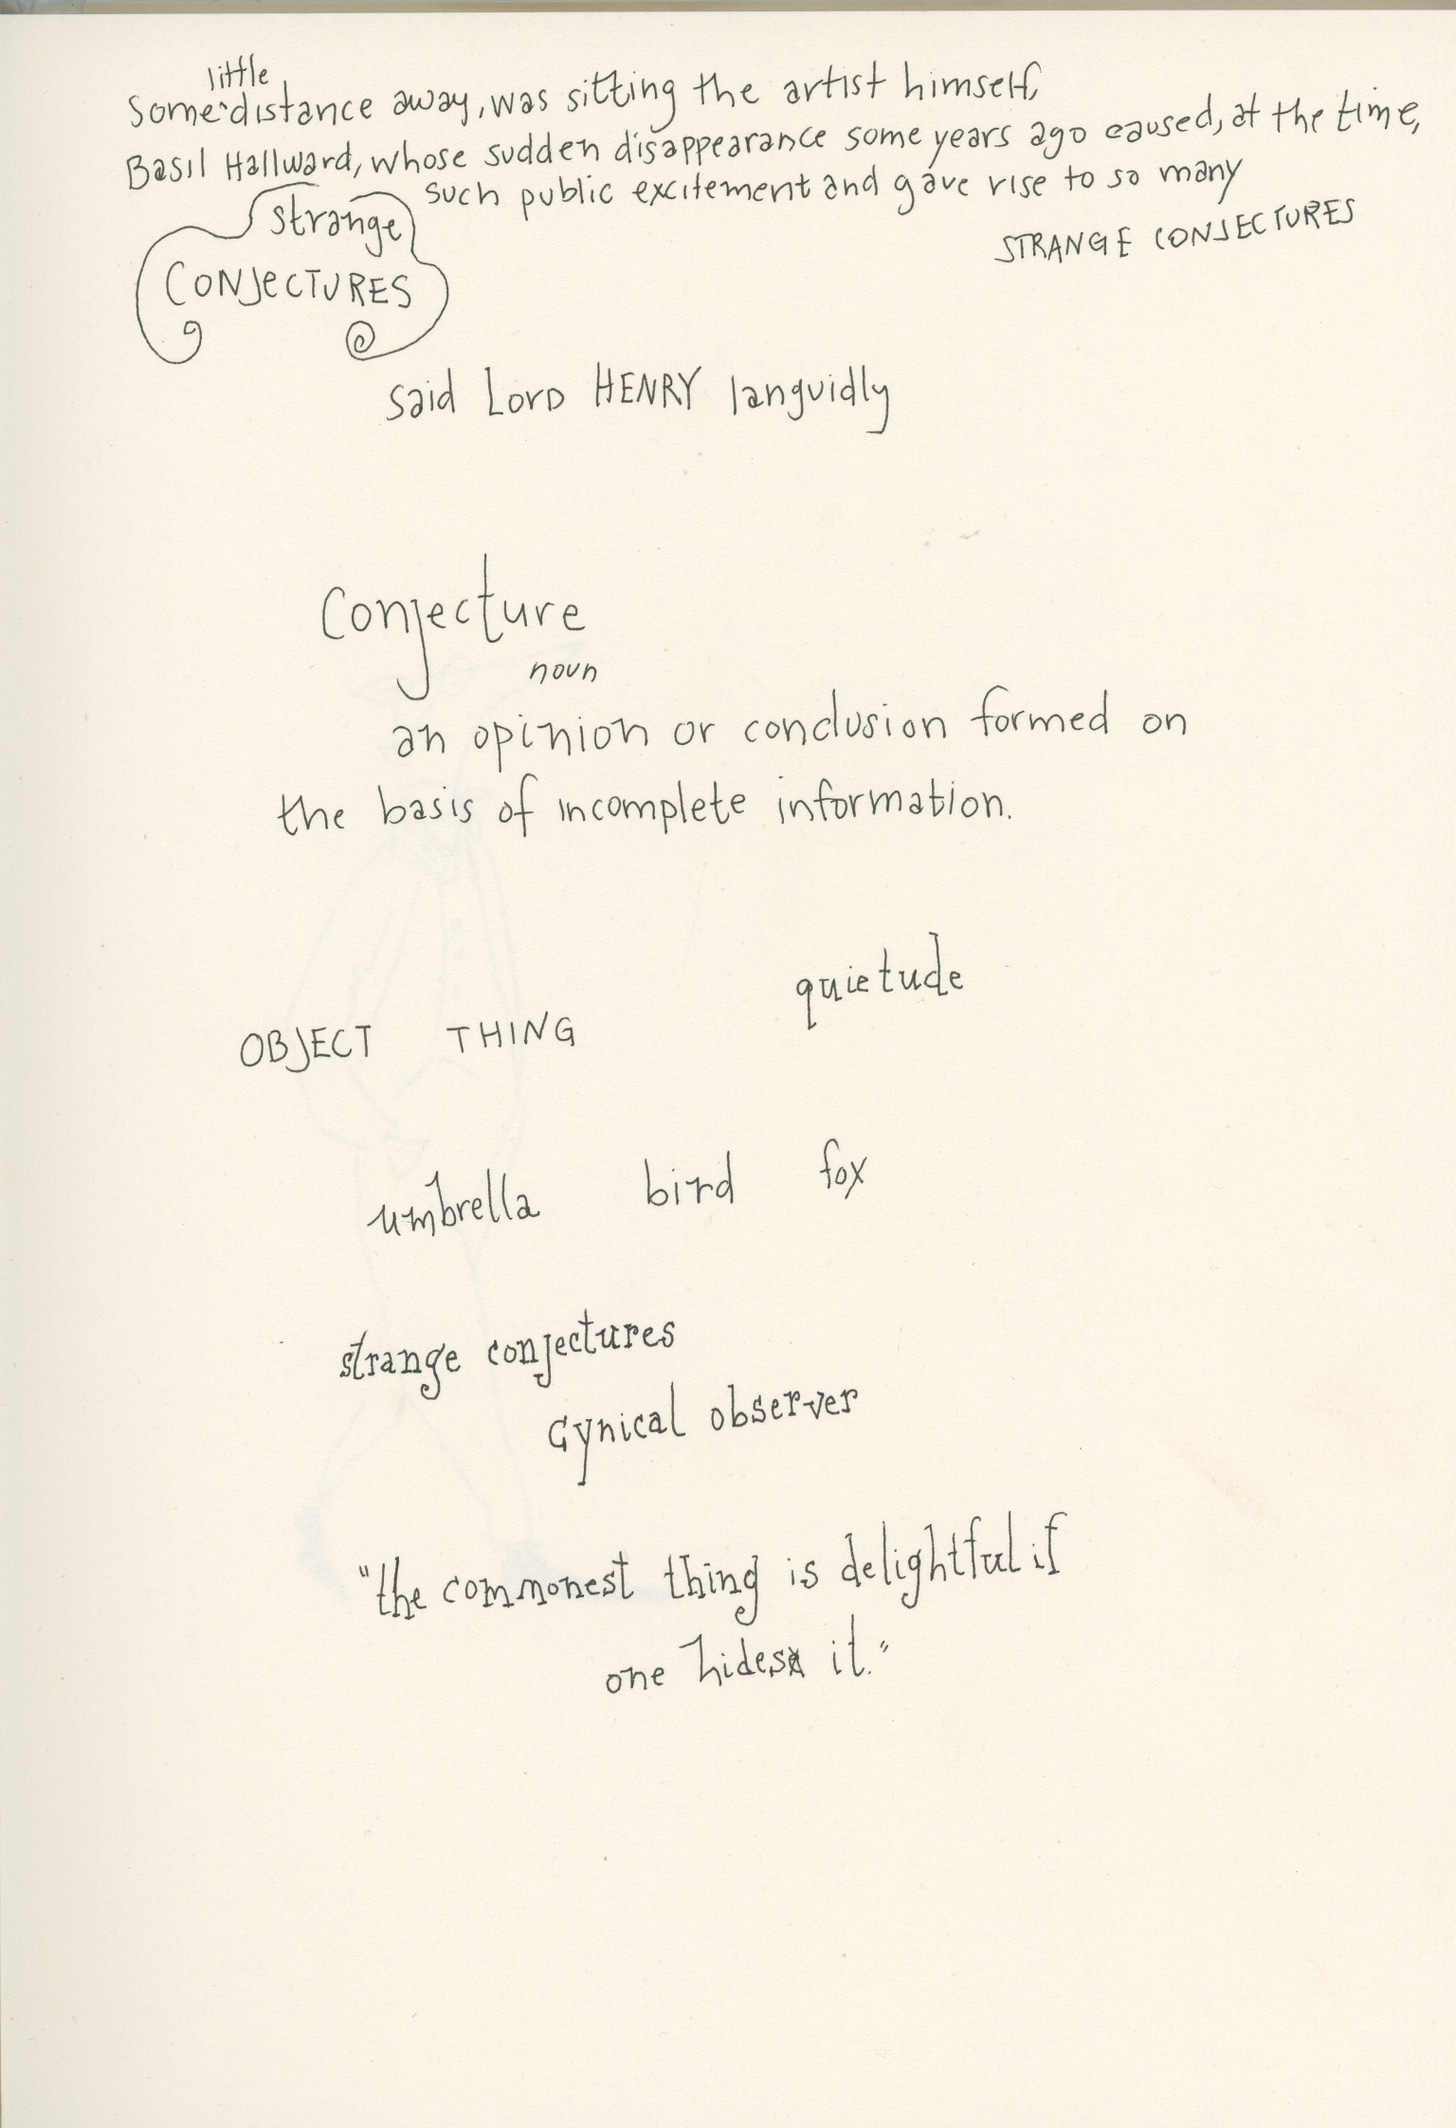 little
Some distance away, was sitting the artist himself,
Basil Hallward, whose sudden disappearance some years ago caused, at the time,
such public excitement and gave rise to so many
strange
CONJECTURES
STRANGE CONJECTURES
said Lord HENRY languidly
Conjecture
noun
an opinion or conclusion formed on
the basis of incomplete information.
quietude
OBJECT THING
umbrella bird fox
strange conjectures
cynical observer
"the commonest thing is delightful if
one hides it."